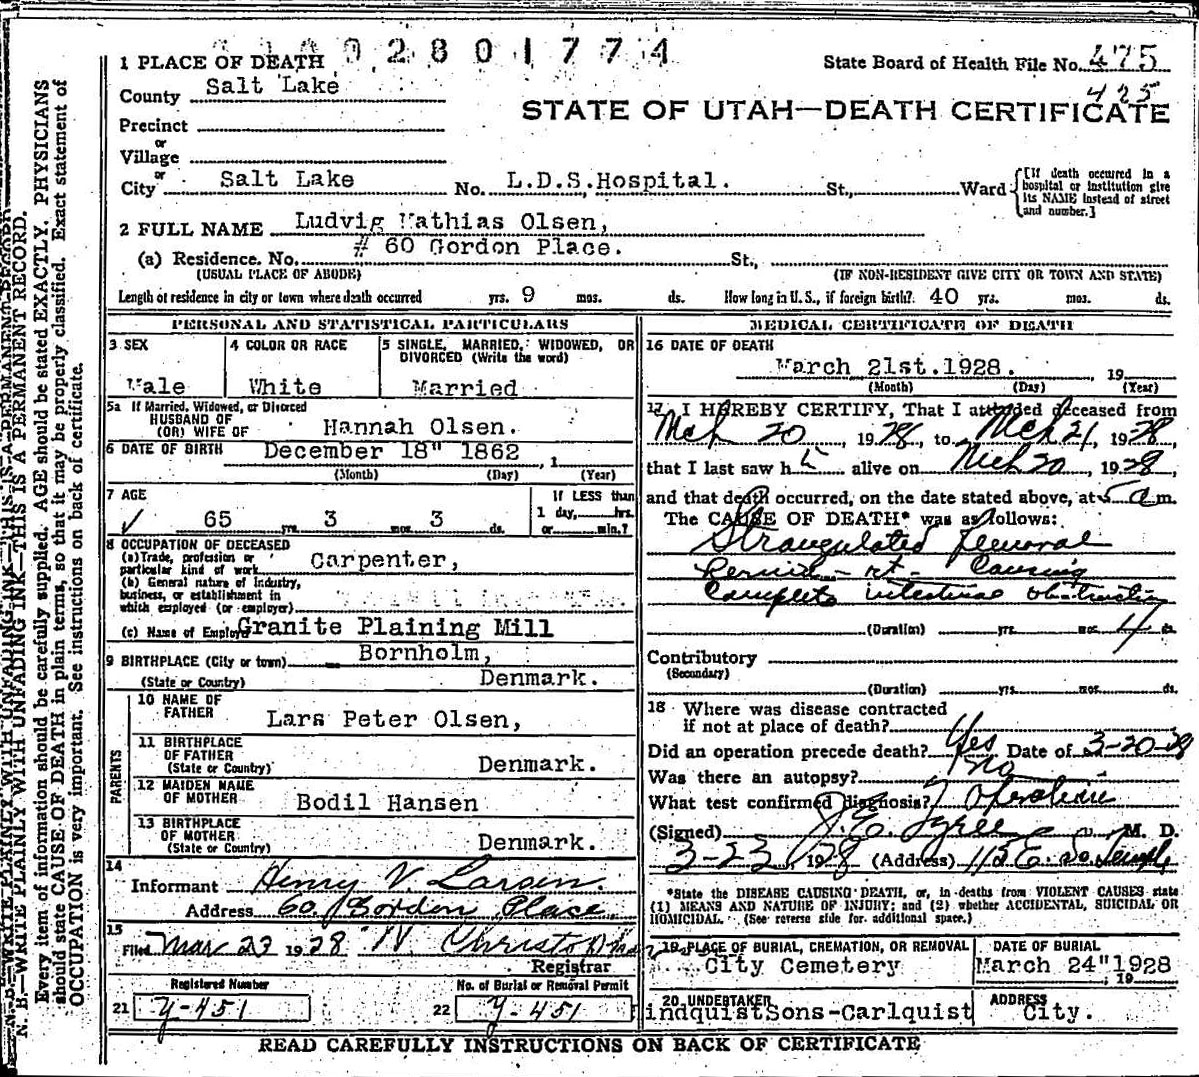 0 2 8 0 1 7 7 4
1 PLACE OF DEATH
State Board of Health File No. 475
425
County Salt Lake
STATE OF UTAH—DEATH CERTIFICATE
Precinct
or
Village
or
City Salt Lake No. L.D.S.Hospital. St., Ward
[If death occurred in a hospital or institution give its NAME instead of street and number.]
2 FULL NAME Ludvig Mathias Olsen,
(a) Residence. No. # 60 Gordon Place. St.,
(USUAL PLACE OF ABODE) (IF NON-RESIDENT GIVE CITY OR TOWN AND STATE)
Length of residence in city or town where death occurred yrs. 9 mos. ds. How long in U. S., if foreign birth? 40 yrs. mos. ds.
PERSONAL AND STATISTICAL PARTICULARS
3 SEX
Male
4 COLOR OR RACE
White
5 SINGLE, MARRIED, WIDOWED, OR DIVORCED (Write the word)
Married
5a If Married, Widowed, or Divorced
HUSBAND OF
(OR) WIFE OF Hannah Olsen.
6 DATE OF BIRTH December 18" 1862, 1
(Month) (Day) (Year)
7 AGE
65 yrs. 3 mos. 3 ds.
If LESS than
1 day, hrs.
or min.?
8 OCCUPATION OF DECEASED
(a) Trade, profession or
particular kind of work Carpenter,
(b) General nature of Industry,
business, or establishment in
which employed (or employer)
(c) Name of Employer Granite Plaining Mill
9 BIRTHPLACE (City or town) Bornholm,
(State or Country) Denmark.
PARENTS
10 NAME OF
FATHER Lars Peter Olsen,
11 BIRTHPLACE
OF FATHER
(State or Country) Denmark.
12 MAIDEN NAME
OF MOTHER Bodil Hansen
13 BIRTHPLACE
OF MOTHER
(State or Country) Denmark.
14
Informant Henry V. Larsen.
Address 60 Gordon Place
15
Filed Mar 23 1928
Registrar
Registered Number
21 Y-451
No. of Burial or Removal Permit
22 Y-451
MEDICAL CERTIFICATE OF DEATH
16 DATE OF DEATH
March 21st.1928. 19
(Month) (Day) (Year)
17 I HEREBY CERTIFY, That I attended deceased from
Mch 20, 1928, to Mch 21, 1928,
that I last saw h alive on Mch 20, 1928,
and that death occurred, on the date stated above, at 5 a m.
The CAUSE OF DEATH* was as follows:
Strangulated femoral
hernia - rt - causing
complete intestinal obstruction
(Duration) yrs. mos. 4 ds.
Contributory
(Secondary)
(Duration) yrs. mos. ds.
18 Where was disease contracted
if not at place of death?
Did an operation precede death? Yes Date of 3-20-28
Was there an autopsy? no
What test confirmed diagnosis? Operation
(Signed) J. E. Tyree M. D.
3-23, 1928 (Address) 115 E. So. Temple
*State the DISEASE CAUSING DEATH, or, in deaths from VIOLENT CAUSES state
(1) MEANS AND NATURE OF INJURY; and (2) whether ACCIDENTAL, SUICIDAL OR
HOMICIDAL. (See reverse side for additional space.)
19 PLACE OF BURIAL, CREMATION, OR REMOVAL
City Cemetery
DATE OF BURIAL
March 24" 1928
19
20 UNDERTAKER
indquistSons-Carlquist
ADDRESS
City.
READ CAREFULLY INSTRUCTIONS ON BACK OF CERTIFICATE
N. B.—WRITE PLAINLY WITH UNFADING INK—THIS IS A PERMANENT RECORD.
Every item of information should be carefully supplied. AGE should be stated EXACTLY. PHYSICIANS
should state CAUSE OF DEATH in plain terms, so that it may be properly classified. Exact statement of
OCCUPATION is very important. See instructions on back of certificate.